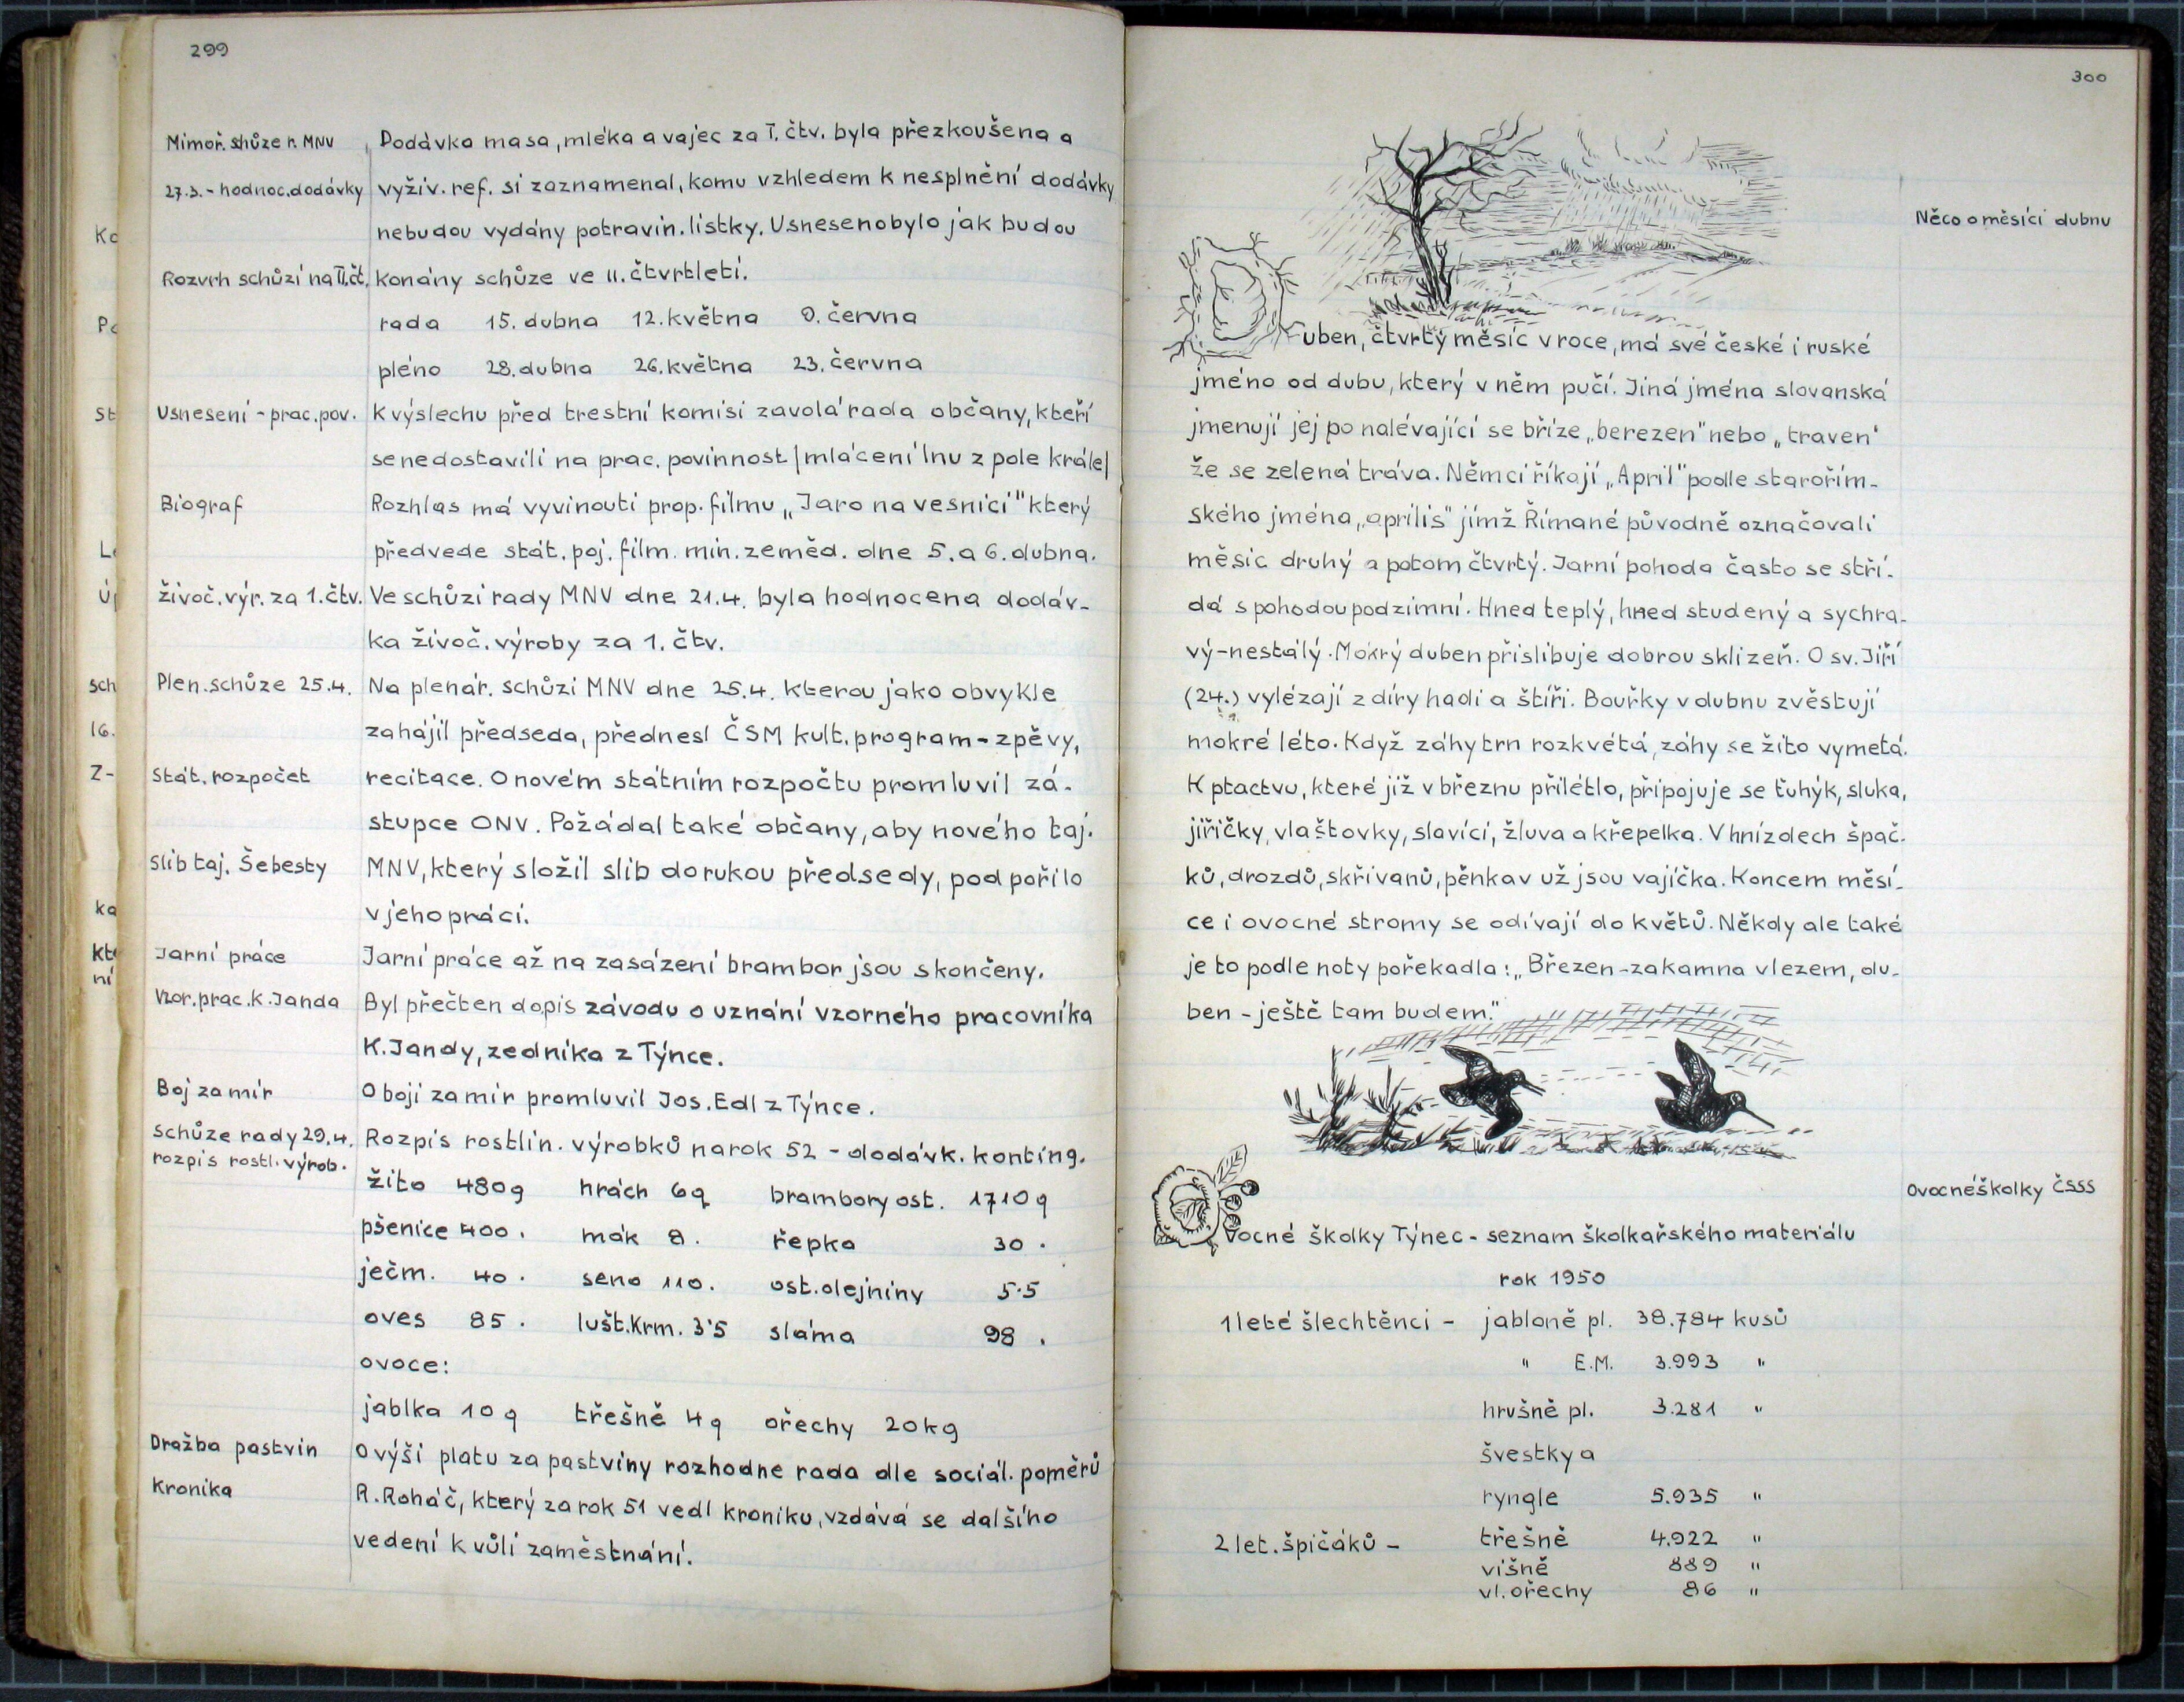 299
Mimoř. schůze r. MNV
Dodávka masa, mléka a vajec za I. čtv. byla přezkoušena a
27.3. - hodnoc. dodávky
vyživ. ref. si zaznamenal, komu vzhledem k nesplnění dodávky
nebudou vydány potravin. lístky. Usneseno bylo jak budou
Rozvrh schůzí na II. čt.
konány schůze ve II. čtvrtletí.
rada 15. dubna 12. května 9. června
pléno 28. dubna 26. května 23. června
Usnesení - prac. pov.
K výslechu před trestní komisi zavolá rada občany, kteří
se nedostavili na prac. povinnost /mlácení lnu z pole krále/
Biograf
Rozhlas má vyvinouti prop. filmu „Jaro na vesnici" který
předvede stát. poj. film. min. zeměd. dne 5. a 6. dubna.
živoč. výr. za 1. čtv.
Ve schůzi rady MNV dne 21.4. byla hodnocena dodáv-
ka živoč. výroby za 1. čtv.
Plen. schůze 25.4.
Na plenár. schůzi MNV dne 25.4. kterou jako obvykle
zahájil předseda, přednesl ČSM kult. program - zpěvy,
Stát. rozpočet
recitace. O novém státním rozpočtu promluvil zá-
stupce ONV. Požádal také občany, aby nového taj.
Slib taj. Šebesty
MNV, který složil slib do rukou předsedy, podpořilo
v jeho práci.
Jarní práce
Jarní práce až na zasázení brambor jsou skončeny.
Vzor. prac. K. Janda
Byl přečten dopis závodu o uznání vzorného pracovníka
K. Jandy, zedníka z Týnce.
Boj za mír
O boji za mír promluvil Jos. Edl z Týnce.
schůze rady 29.4.
rozpis rostl. výrob.
Rozpis rostlin. výrobků na rok 52 - dodávk. konting.
žito 480q hrách 6q brambory ost. 1710q
pšenice 400 . mák 8 . řepka 30 .
ječm. 40 . seno 110 . ost. olejniny 5·5
oves 85 . lušt. krm. 3'5 sláma 98 .
ovoce:
jablka 10 q třešně 4 q ořechy 20 kg
Dražba pastvin
O výši platu za pastviny rozhodne rada dle sociál. poměrů
Kronika
R. Roháč, který za rok 51 vedl kroniku, vzdává se dalšího
vedení k vůli zaměstnání.
Ko
St
sch
16.
Z-
ka
kte
ní
300
Něco o měsíci dubnu
Duben, čtvrtý měsíc v roce, má své české i ruské
jméno od dubu, který v něm pučí. Jiná jména slovanská
jmenují jej po nalévající se bříze „berezen" nebo „traven'
že se zelená tráva. Němci říkají „April" podle starořím-
ského jména „aprilis" jímž Římané původně označovali
měsíc druhý a potom čtvrtý. Jarní pohoda často se stří-
dá s pohodou podzimní. Hned teplý, hned studený a sychra-
vý - nestálý. Mokrý duben přislibuje dobrou sklizeň. O sv. Jiří
(24.) vylézají z díry hadi a štíři. Bouřky v dubnu zvěstují
mokré léto. Když záhy trn rozkvétá, záhy se žito vymetá.
K ptactvu, které již v březnu přilétlo, připojuje se ťuhýk, sluka,
jiřičky, vlaštovky, slavíci, žluva a křepelka. V hnízdech špač-
ků, drozdů, skřivanů, pěnkav už jsou vajíčka. Koncem měsí-
ce i ovocné stromy se odívají do květů. Někdy ale také
je to podle noty pořekadla: „Březen - za kamna vlezem, du-
ben - ještě tam budem."
Ovocné školky ČSSS
Ovocné školky Týnec - seznam školkařského materiálu
rok 1950
1 leté šlechtěnci - jabloně pl. 38.784 kusů
" E.M. 3.993 "
hrušně pl. 3.281 "
švestky a
ryngle 5.935 "
2 let. špičáků - třešně 4.922 "
višně 889 "
vl. ořechy 86 "